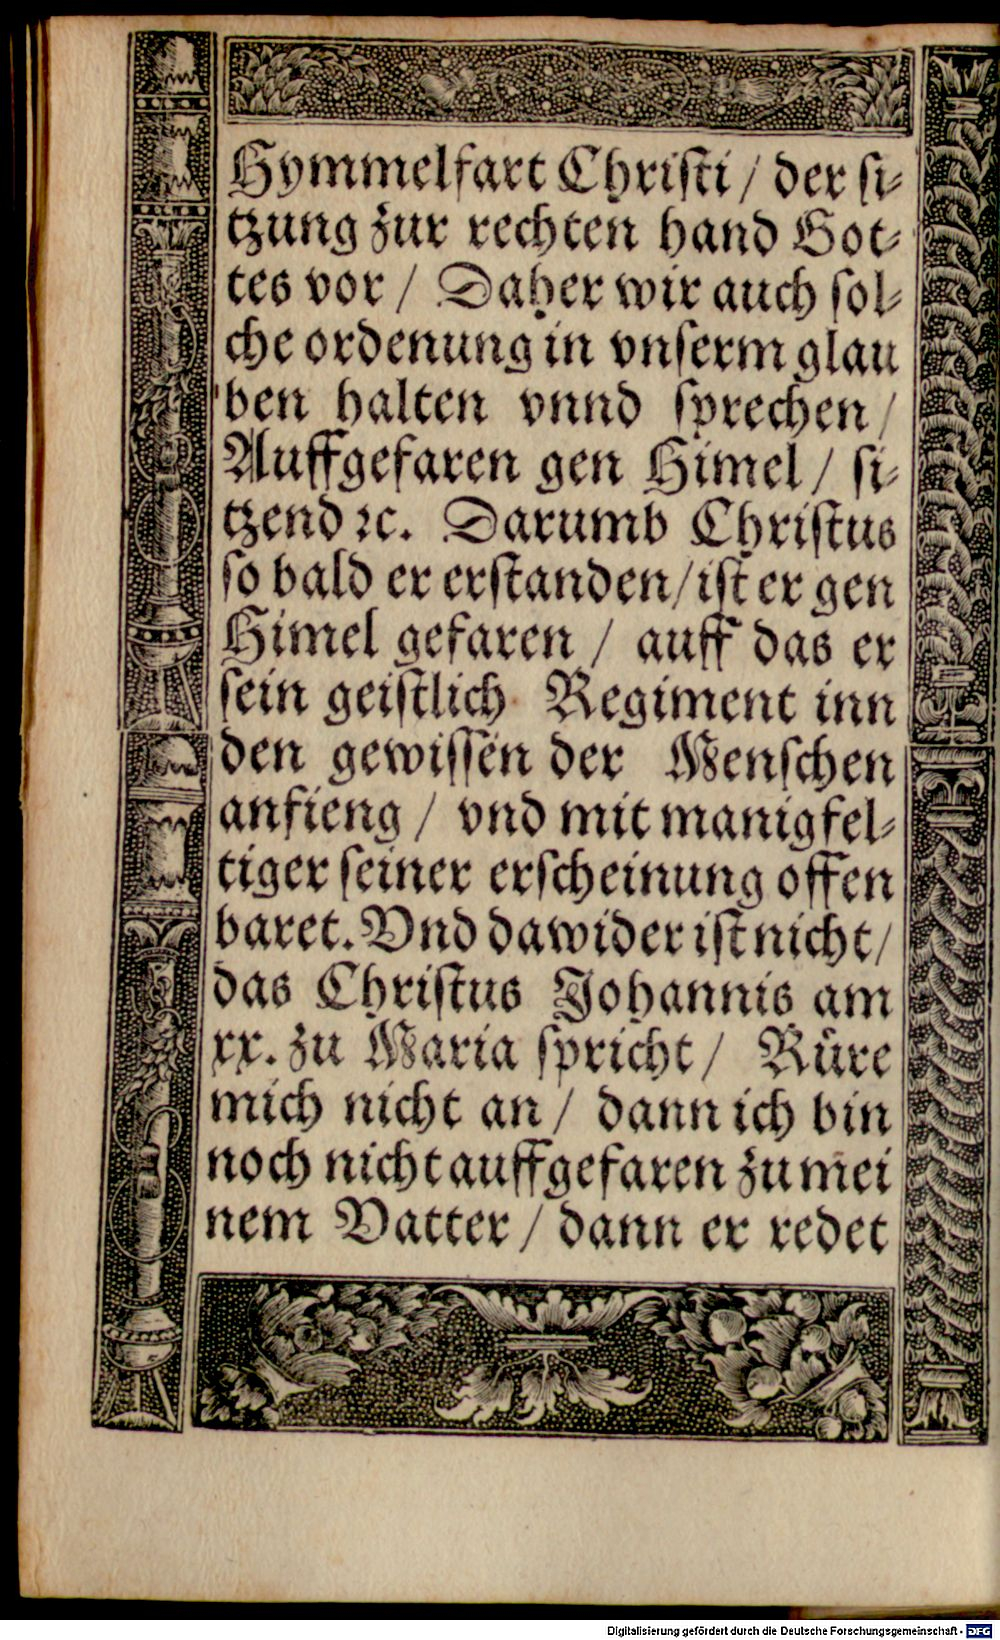 Hymmelfart Chriſti / der ſi⸗
tzung zur rechten hand Got⸗
tes vor / Daher wir auch ſol⸗
che ordenung in vnſerm glau
ben halten vnnd ſprechen /
Auffgefaren gen Himel / ſi⸗
tzend ꝛc. Darumb Chriſtus
ſo bald er erſtanden / iſt er gen
Himel gefaren / auff das er
ſein geiſtlich Regiment inn
den gewiſſen der Menſchen
anfieng / vnd mit manigfel⸗
tiger ſeiner erſcheinung offen
baret. Vnd dawider iſt nicht /
das Chriſtus Johannis am
xx. zu Maria ſpricht / Rüre
mich nicht an / dann ich bin
noch nicht auffgefaren zu mei
nem Vatter / dann er redet
Digitalisierung gefördert durch die Deutsche Forschungsgemeinschaft - DFG